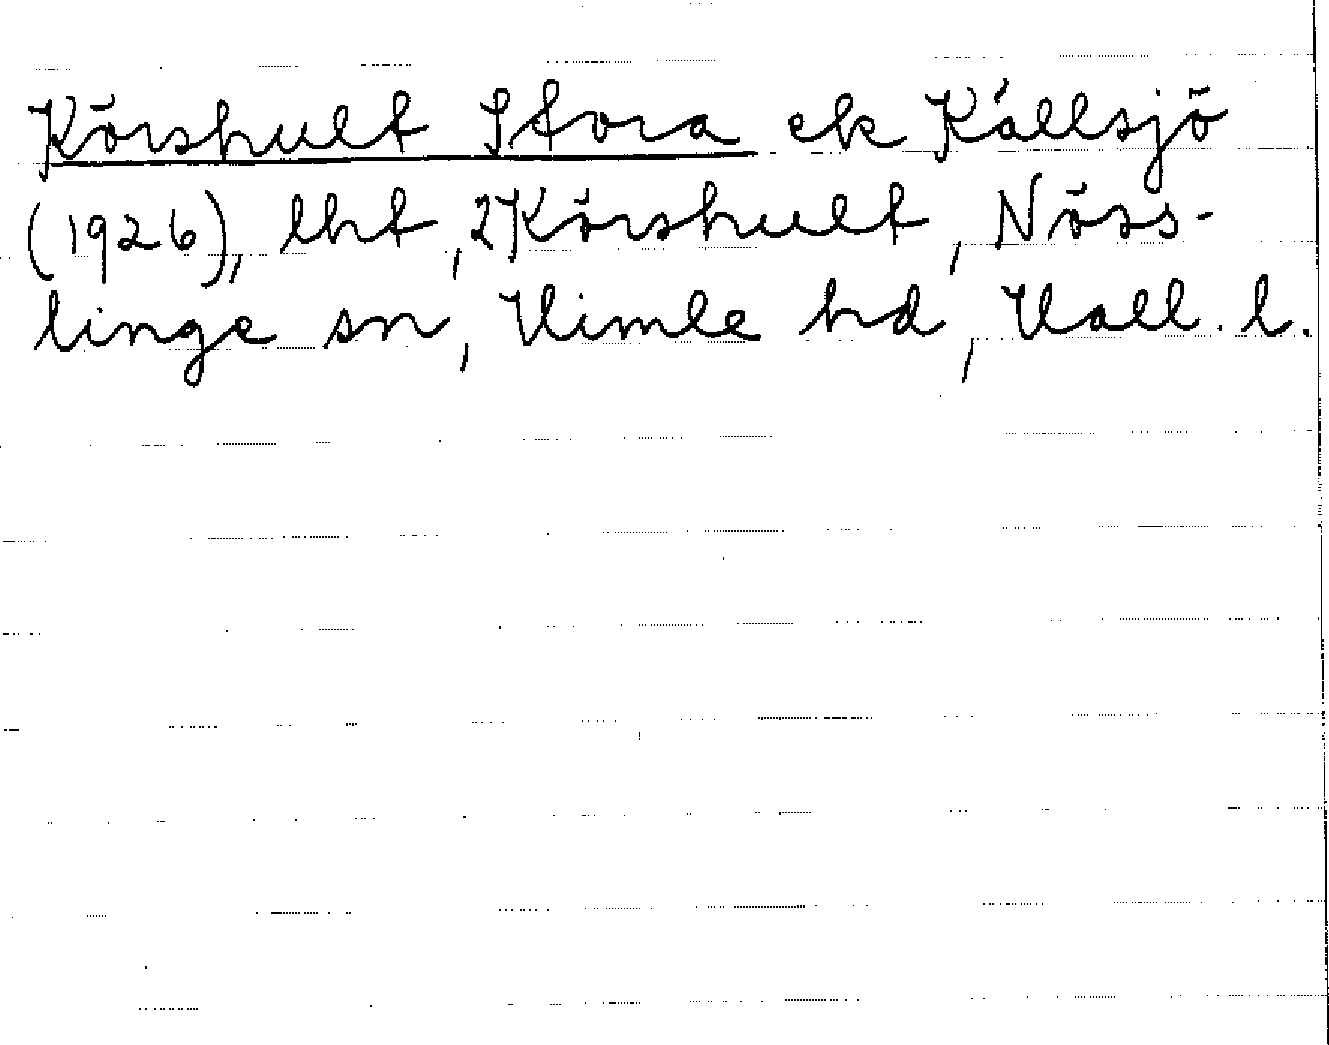 Körshult Stora ek Källsjö
(1926), lht, 2 Körshult, Nöss-
linge sn, Himle hd, Hall. l.